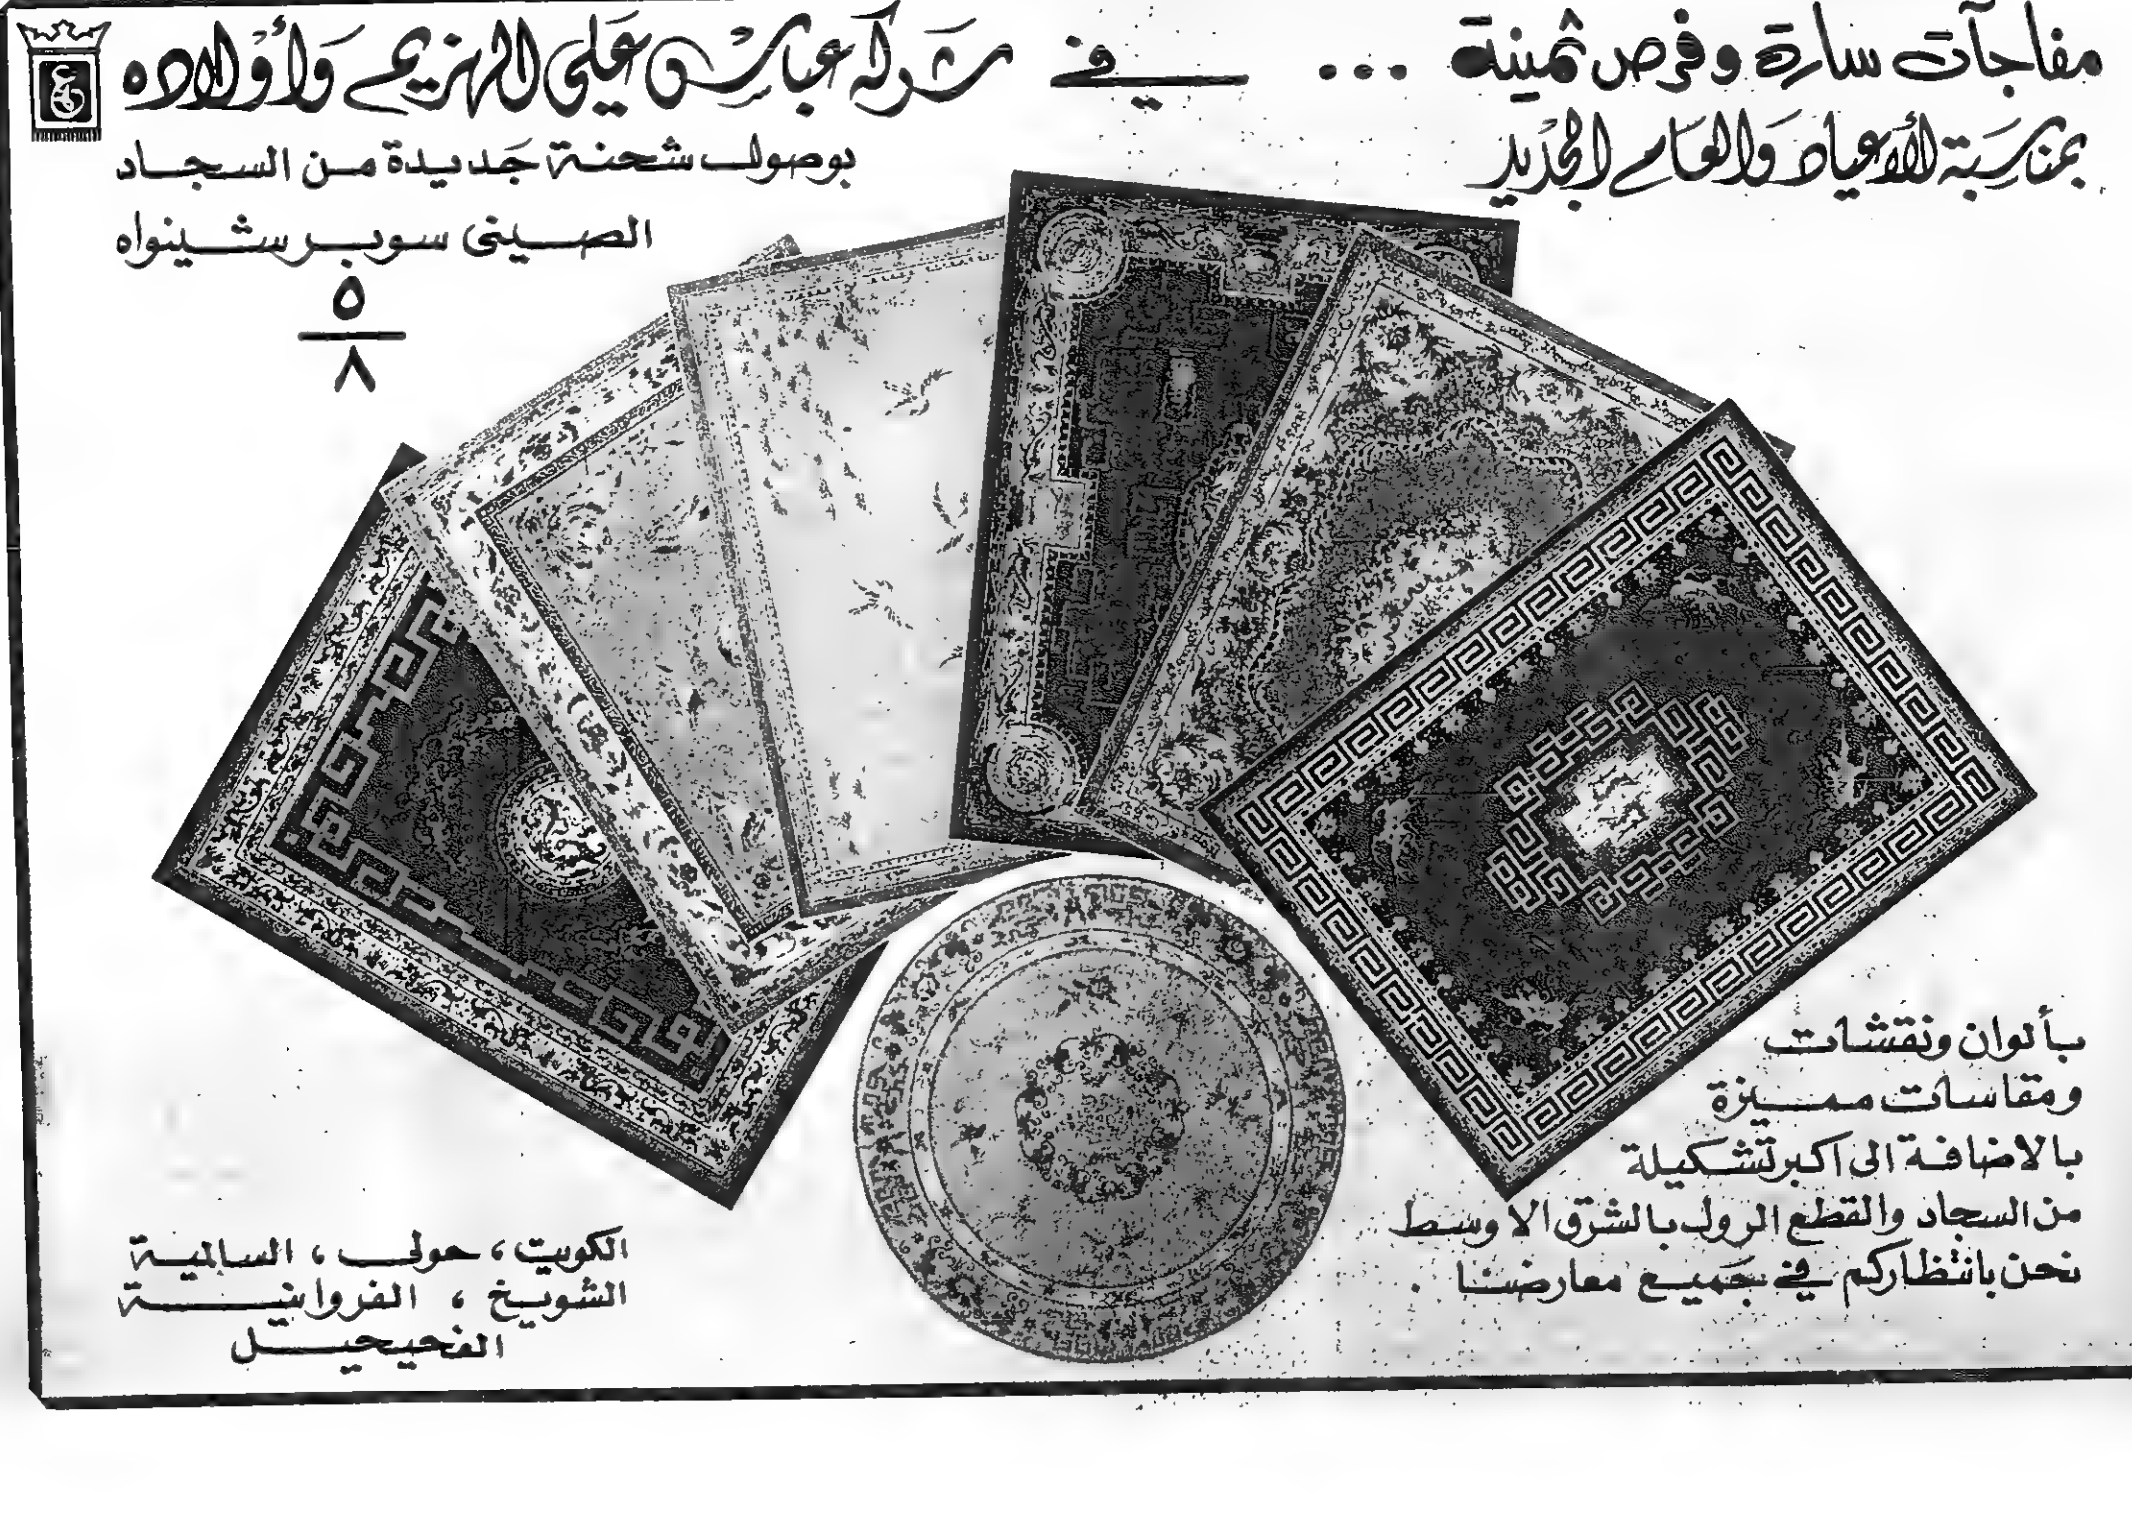 مفاجآت سارة وفرص ثمينة ... في شركة عباس علي الهزيم وأولاده
بمناسبة الأعياد والعام الجديد
بوصول شحنة جديدة من السجاد
الصيني سوبر ستينواه
٥
٨
بألوان ونقشات
ومقاسات مميزة
بالاضافة الى اكبر تشكيلة
من السجاد والقطع الرول بالشرق الاوسط
نحن بانتظاركم في جميع معارضنا .
الكويت ، حولي ، السالمية
الشويخ ، الفروانية
الفحيحيل